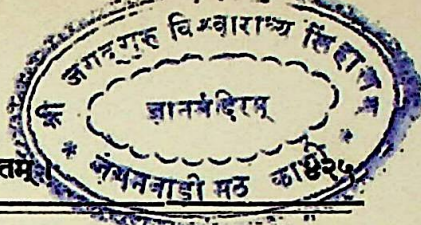 श्री जगद्गुरु विश्वाराध्य सिंहासन
ज्ञानमंदिरम्
* जंगमवाडी मठ काशी *
तम् ।
४२५